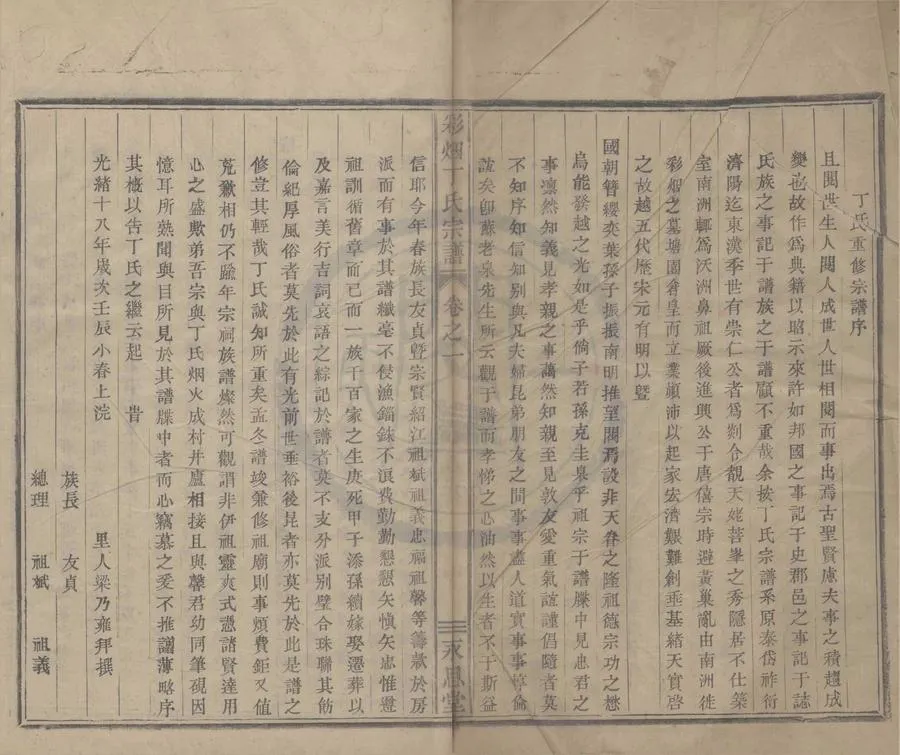 丁氏重修宗譜序
且閱世生人閱人成世人世相閱而事出焉古聖賢慮夫事之積趨成
變也故作為典籍以昭示來許如邦國之事記于史郡邑之事記于誌
氏族之事記于譜族之于譜顧不重哉余按丁氏宗譜系原泰岱祚衍
濟陽迄東漢季世有崇仁公者為剡令覩天姥菩峯之秀隱居不仕築
室南洲輒為沃洲鼻祖厥後進興公于唐僖宗時避黃巢亂由南洲徙
彩烟之墓塘園會皇而立業顛沛以起家宏濟艱難創垂基緒天實啓
之故越五代歷宋元有明以暨
國朝簪纓奕葉孫子振振南明推望閥焉設非天眷之隆祖德宗功之懋
烏能發越之光如是乎倘子若孫克圭臬乎祖宗于譜牒中見忠君之
事凜然知義見孝親之事藹然知親至見敦友愛重氣誼謹倡隨者莫
不知序知信知別與凡夫婦昆弟朋友之間事事盡人道實事事惇倫
誼矣卽蘇老泉先生所云觀于譜而孝悌之心油然以生者不于斯益
彩烟丁氏宗譜
卷之一
永思堂
信耶今年春族長友貞暨宗賢紹江祖斌祖義忠福祖馨等籌款於房
派而有事於其譜纖毫不侵漁錙銖不浪費勤勤懇懇矢慎矢忠惟遵
祖訓循舊章而已而一族千百家之生庚死甲子添孫續嫁娶遷葬以
及嘉言美行吉詞哀語之綜記於譜者莫不支分派別璧合珠聯其飭
倫紀厚風俗者莫先於此有光前世垂裕後昆者亦莫先於此是譜之
修豈其輕哉丁氏誠知所重矣孟冬譜竣兼修祖廟則事煩費鉅又值
荒歉相仍不踰年宗祠族譜燦然可觀謂非伊祖靈爽式憑諸賢達用
心之盛歟弟吾宗與丁氏烟火成村井廬相接且與馨君幼同筆硯因
憶耳所熟聞與目所見於其譜牒中者而心竊慕之爰不推謭薄略序
其概以告丁氏之繼云起 旹
光緒十八年歲次壬辰小春上浣 里人梁乃雍拜撰
族長 友貞
總理 祖斌 祖義